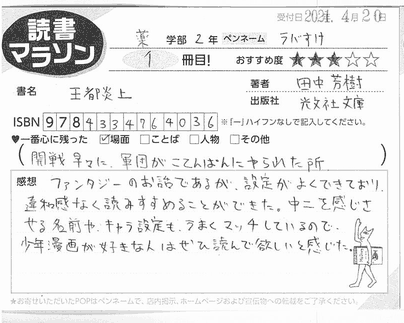 受付日 2021年 4月20日
読書マラソン
薬 学部 2年 ペンネーム うなすけ
1 冊目! おすすめ度 ★★★☆☆
書名 王都炎上
著者 田中芳樹
出版社 光文社文庫
ISBN 9784334764036 ※「ー」ハイフンなしで記入してください。
♥一番心に残った ☑場面 □ことば □人物 □その他
(開戦早々に、軍団がこてんぱんにやられた所)
感想 ファンタジーのお話であるが、設定がよくできており、
違和感なく読みすすめることができた。中二を感じさ
せる名前や、キャラ設定も、うまくマッチしているので、
少年漫画が好きな人はぜひ読んで欲しいと感じた。
★お寄せいただいたPOPはペンネームで、店内掲示、ホームページおよび目伝物への転載をご了承ください。